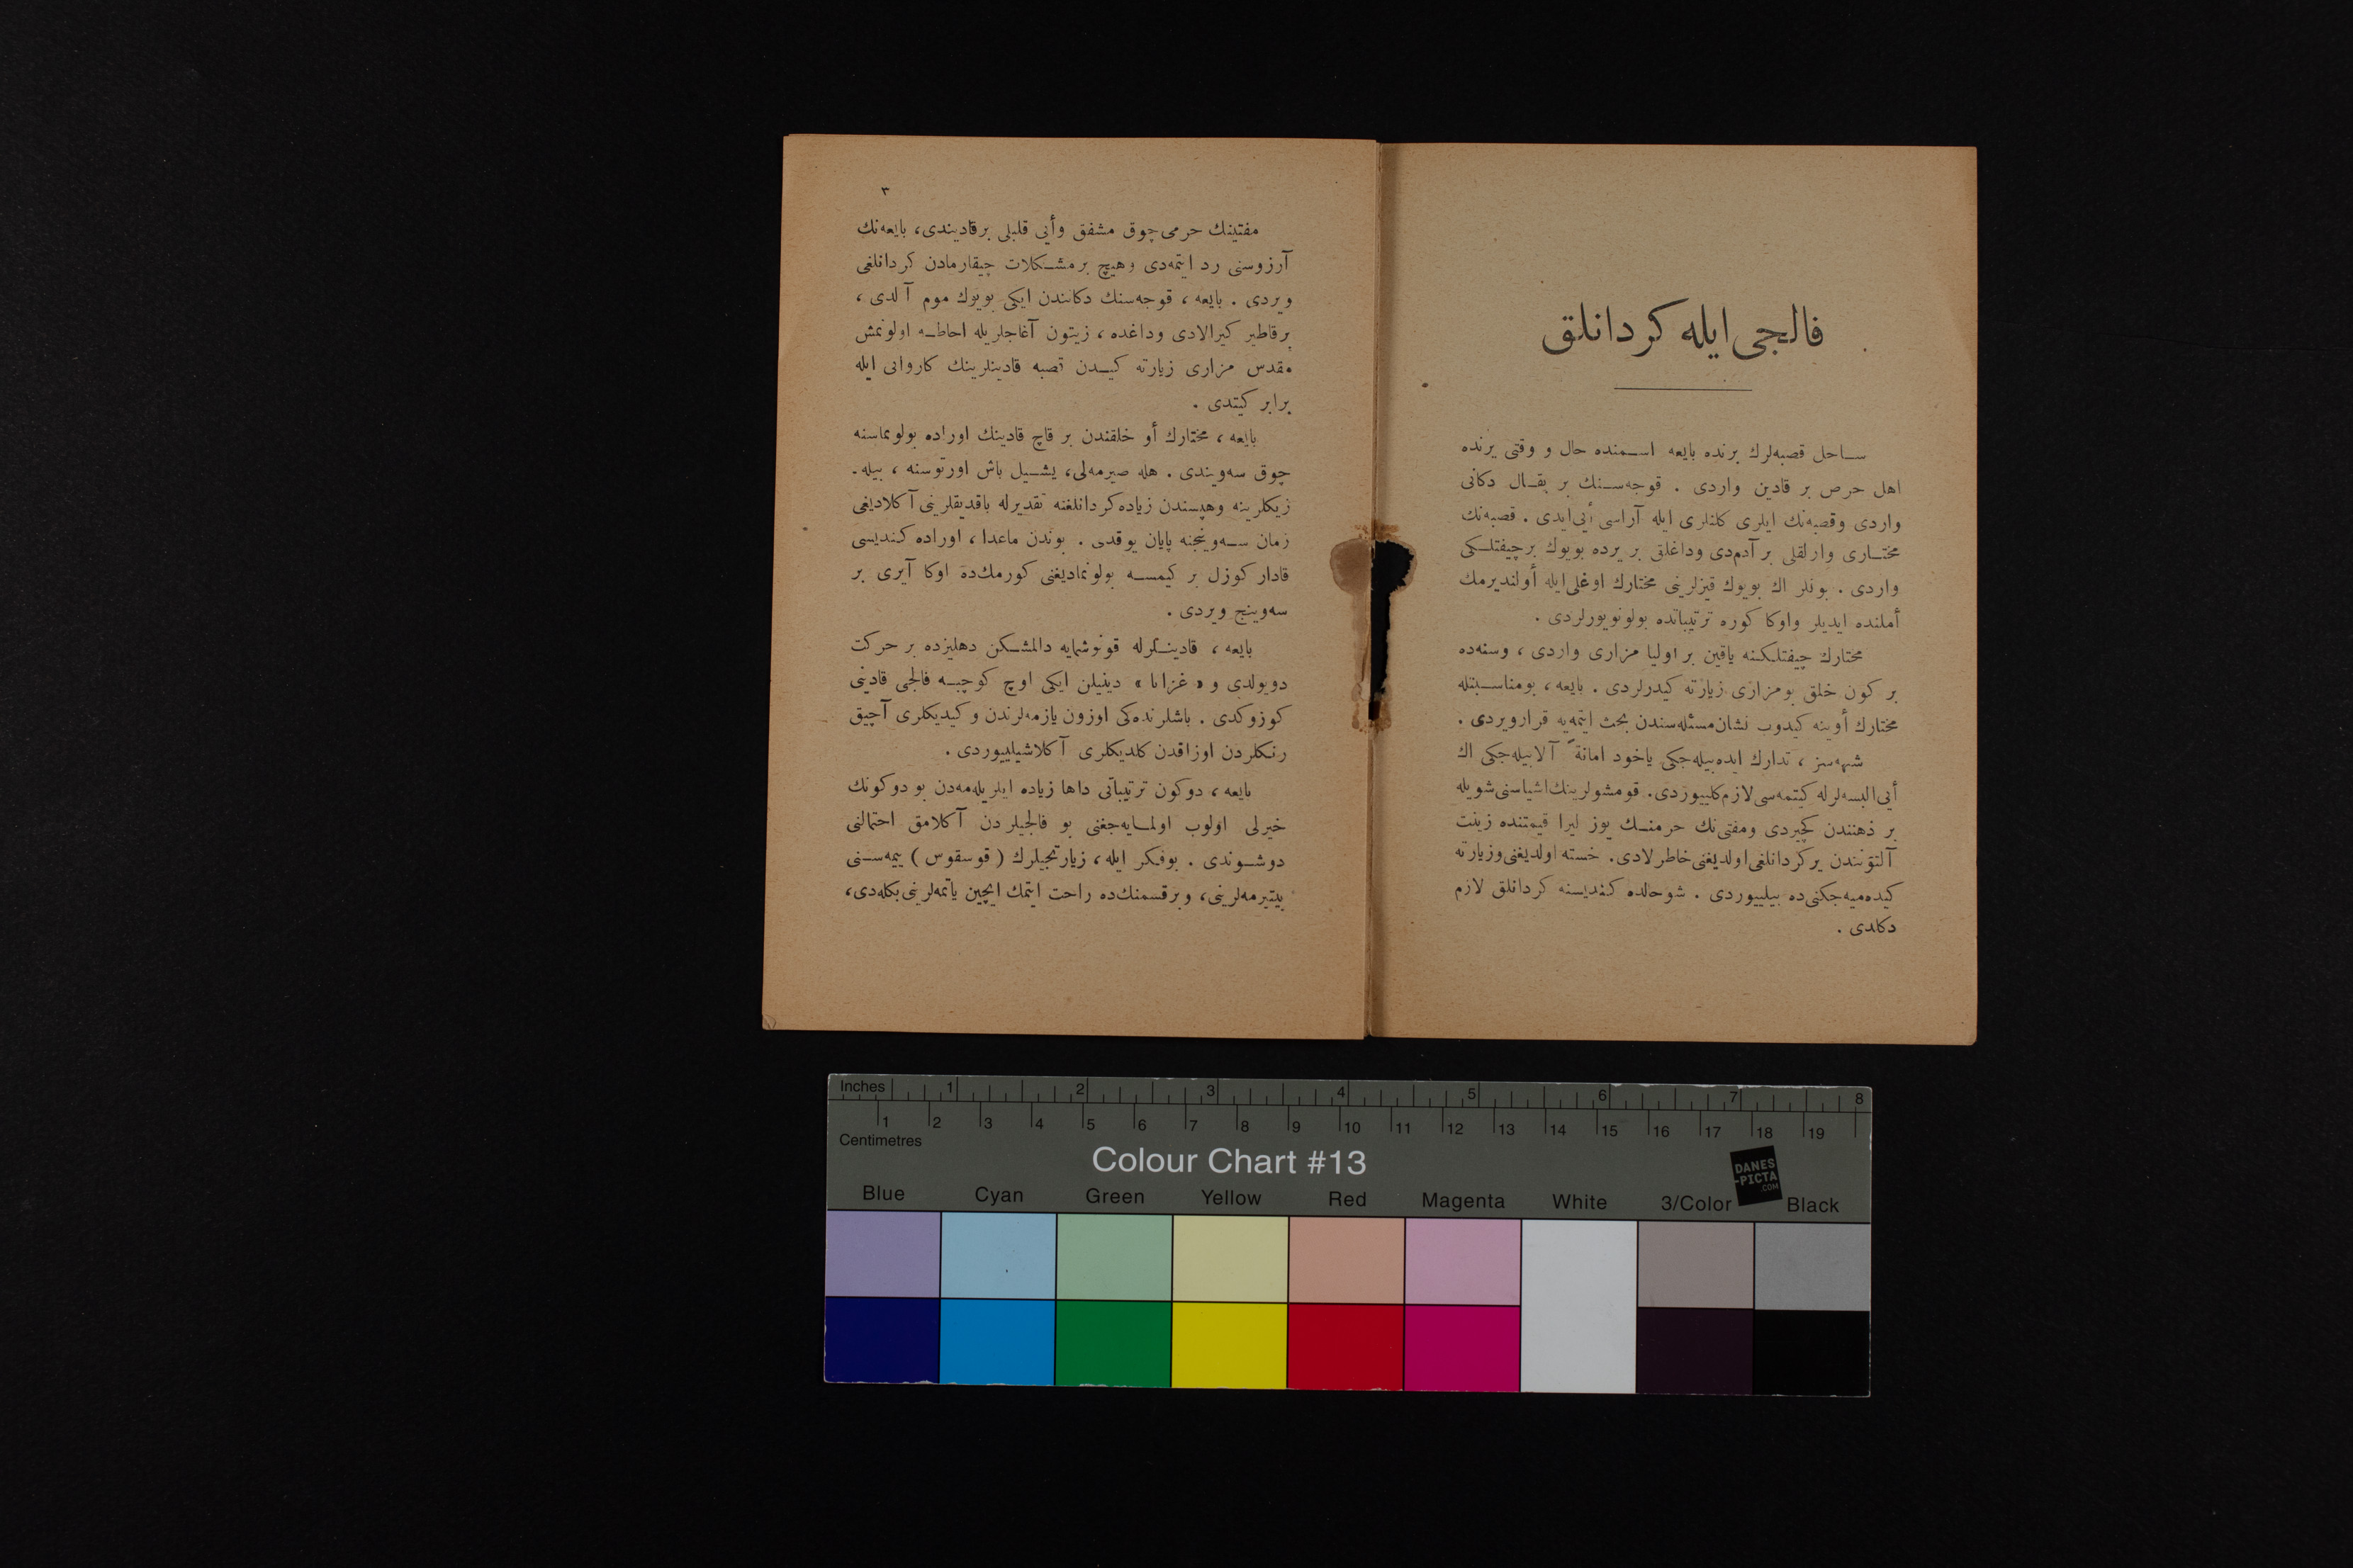 فالجی ایله کردانلق
ساحل قصبه‌لرك برنده بایعه اسمنده حال و وقتی یرنده
اهل حرص بر قادین واردی . قوجه‌سنك بر بقال دکانی
واردی وقصبه‌نك ایلری کلنلری ایله آراسی أیی‌ایدی . قصبه‌نك
مختاری وارلقلی بر آدم‌دی وداغلق بر یرده بویوك برچیفتلكی
واردی . بونلر اك بویوك قیزلرینی مختارك اوغلی‌ایله أولندیرمك
أملنده ایدیلر واوکا کوره ترتیباتده بولونویورلردی .
مختارك چیفتلكنه یاقین بر اولیا مزاری واردی ، وسنه‌ده
بر کون خلق بومزاری زیارته کیدرلردی . بایعه ، بومناسبتله
مختارك أوینه کیدوب نشان‌مسئله‌سندن بحث ایتمه‌یه قرارویردی .
شبهه‌سز ، تدارك ایده‌بیله‌جکی یاخود امانةً آلابیله‌جکی اك
أیی‌البسه‌لرله کیتمه‌سی‌لازم‌کلییوردی . قومشولرینك‌اشیاسنی‌شویله
بر ذهنندن کچیردی ومفتی‌نك حرمنك یوز لیرا قیمتنده زینت
آلتوننندن برکردانلغی‌اولدیغنی‌خاطرلادی . خسته اولدیغنی‌وزیارته
کیده‌میه‌جکنی‌ده بیلییوردی . شوحالده کندیسنه کردانلق لازم
دکلدی .
٣
مفتینك حرمی‌چوق مشفق وأیی قلبلی برقادیندی ، بایعه‌نك
آرزوسنی رد ایتمه‌دی وهیچ برمشکلات چیقارمادن کردانلغی
ویردی . بایعه ، قوجه‌سنك دکانندن ایکی بویوك موم آلدی ،
برقاطیر کیرالادی وداغده ، زیتون آغاجلریله احاطه اولونمش
مقدس مزاری زیارته کیدن قصبه قادینلرینك کاروانی ایله
برابر کیتدی .
بایعه ، مختارك أو خلقندن بر قاچ قادینك اوراده بولونماسنه
چوق سه‌ویندی . هله صیرمه‌لی ، یشیل باش اورتوسنه ، بیله‌-
زیکلرینه وهپسندن زیاده‌کردانلغنه تقدیرله باقدیقلرینی آکلادیغی
زمان سه‌وینجنه پایان یوقدی . بوندن ماعدا ، اوراده کندیسی
قادار کوزل بر کیمسه بولونمادیغنی کورمك‌ده اوکا آیری بر
سه‌وینج ویردی .
بایعه ، قادینلرله قونوشمایه دالمشکن دهلیزده بر حرکت
دویولدی و « غزانا » دینیلن ایکی اوچ کوچبه فالجی قادینی
کوزوکدی . باشلرنده‌کی اوزون یازمه‌لرندن وکیدیکلری آچیق
رنکلردن اوزاقدن کلدیکلری آکلاشیلییوردی .
بایعه ، دوکون ترتیباتی داها زیاده ایلریله‌مه‌دن بو دوکونك
خیرلی اولوب اولمایه‌جغنی بو فالجیلردن آکلامق احتمالنی
دوشوندی . بوفکر ایله ، زیارتجیلرك ( قوسقوس ) ییمه‌سنی
بیتیرمه‌لرینی ، وبرقسمنك‌ده راحت ایتمك ایچین یاتمه‌لرینی‌بکله‌دی ،
Inches 1 2 3 4 5 6 7 8
1 2 3 4 5 6 7 8 9 10 11 12 13 14 15 16 17 18 19
Centimetres
Colour Chart #13
DANES
-PICTA
.COM
Blue Cyan Green Yellow Red Magenta White 3/Color Black